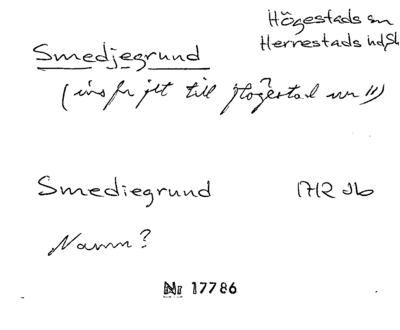 Högestads sn
Herrestads hd, Sk
Smedjegrund
(ins fr jlt till Högestad nr 11)
Smediegrund 1712 Jb
Namn?
Nr 17786